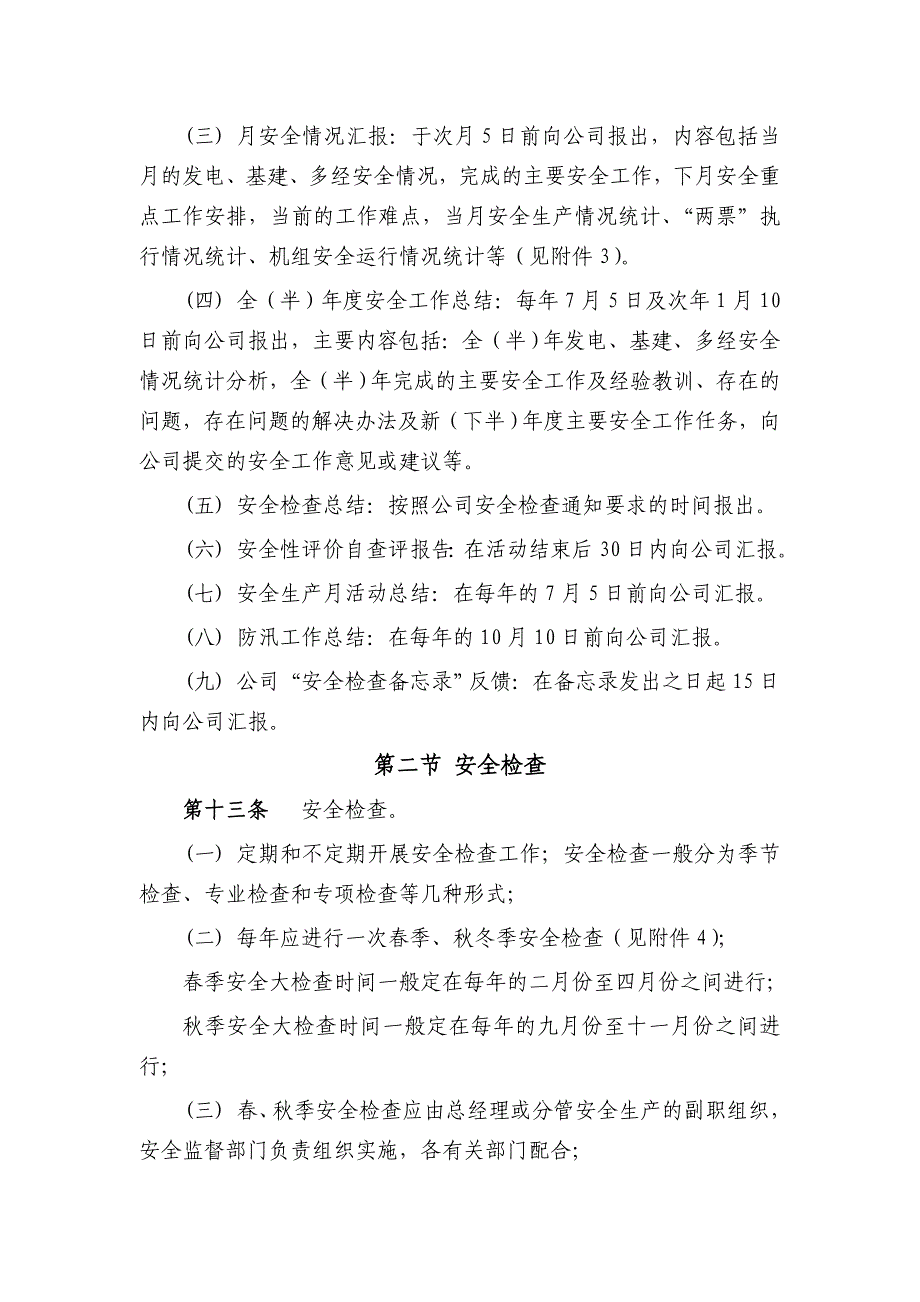 (三) 月安全情况汇报：于次月5日前向公司报出，内容包括当
月的发电、基建、多经安全情况，完成的主要安全工作，下月安全重
点工作安排，当前的工作难点，当月安全生产情况统计、“两票”执
行情况统计、机组安全运行情况统计等（见附件3）。
(四) 全（半）年度安全工作总结：每年7月5日及次年1月10
日前向公司报出，主要内容包括：全（半）年发电、基建、多经安全
情况统计分析，全（半）年完成的主要安全工作及经验教训、存在的
问题，存在问题的解决办法及新（下半）年度主要安全工作任务，向
公司提交的安全工作意见或建议等。
(五) 安全检查总结：按照公司安全检查通知要求的时间报出。
(六) 安全性评价自查评报告：在活动结束后30日内向公司汇报。
(七) 安全生产月活动总结：在每年的7月5日前向公司汇报。
(八) 防汛工作总结：在每年的10月10日前向公司汇报。
(九) 公司“安全检查备忘录”反馈：在备忘录发出之日起15日
内向公司汇报。
第二节 安全检查
第十三条 安全检查。
(一) 定期和不定期开展安全检查工作；安全检查一般分为季节
检查、专业检查和专项检查等几种形式；
(二) 每年应进行一次春季、秋冬季安全检查（见附件4）；
春季安全大检查时间一般定在每年的二月份至四月份之间进行；
秋季安全大检查时间一般定在每年的九月份至十一月份之间进
行；
(三) 春、秋季安全检查应由总经理或分管安全生产的副职组织，
安全监督部门负责组织实施，各有关部门配合；